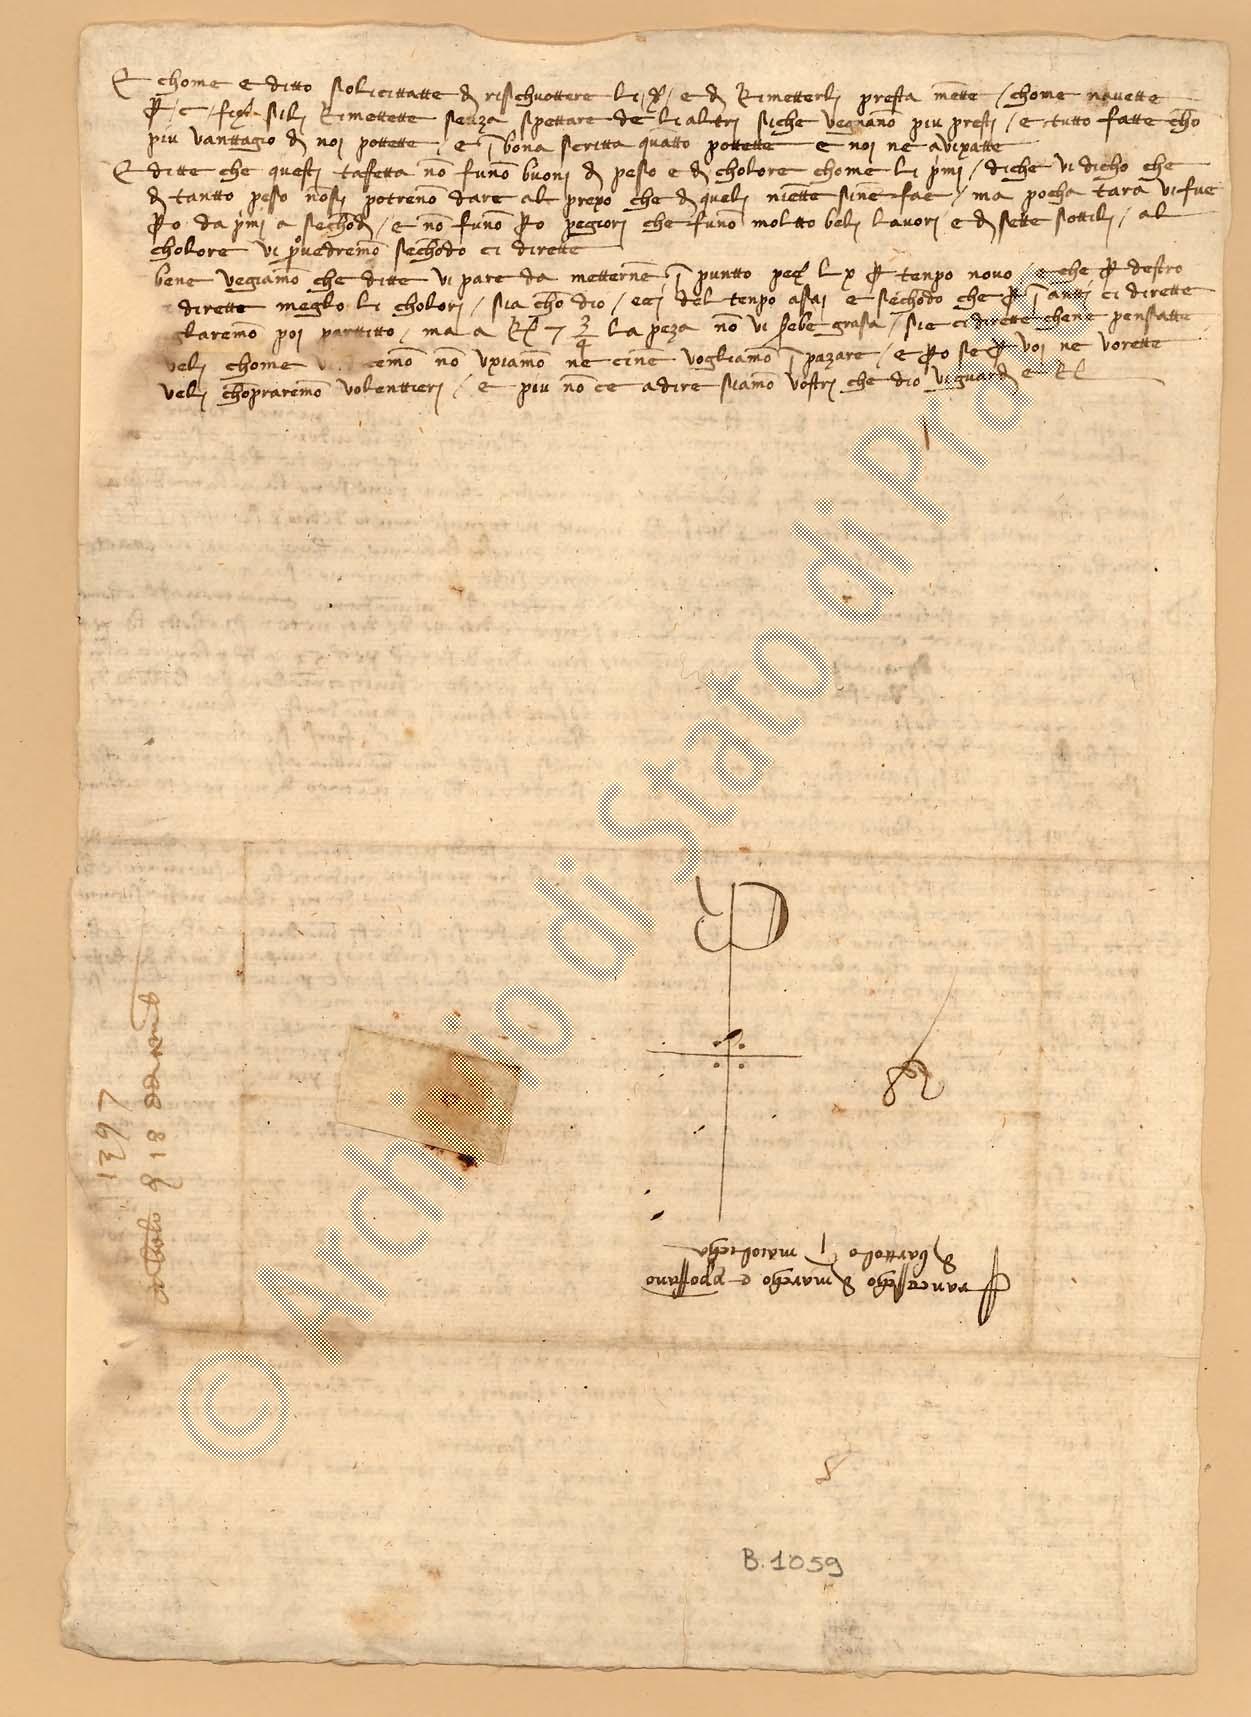 E chome e ditto solicittatte d rischuottere li / e d Rimetterli presta mette / chome navette
sili Rimettette senza spettare de li altri siche vegiano piu presti / e tutto fatte cho
piu vanttagio d noi pottette / e i bona scritta quatto pottette e noi ne avixatte
E ditte che questi taffetta no funo buoni d peso e d cholore chome li pmi / diche vi dicho che
d tantto peso nosi potreno dare al prexo che d queli niette sine fae / ma pocha tara vi fue
po da pmi a sechodi / e no funo po pegiori che funo moltto beli lavori e d sette sottili / al
cholore vi provedremo sechodo ci dirette
bene vegiamo che ditte vi pare da metterne i puntto peze lx p tenpo novo / e che p destro
dirette meglo li cholori / sia cho dio / eci del tenpo asai e sechodo che p i antti ci dirette
glaremo poi parttitto / ma a 7 3/4 la peza no vi sebe grasa / sie ci dirette chene pensatte
veli chome cemo no uxiamo ne cine vogliamo i pazare / e po se p voi ne vorette
veli chopraremo volenttieri / e piu no ce a dire siamo vostri che dio vi guardi e
Francescho d marcho e
d barttolo i maiolicha
1397
18
B. 1059
© Archivio di Stato di Prato